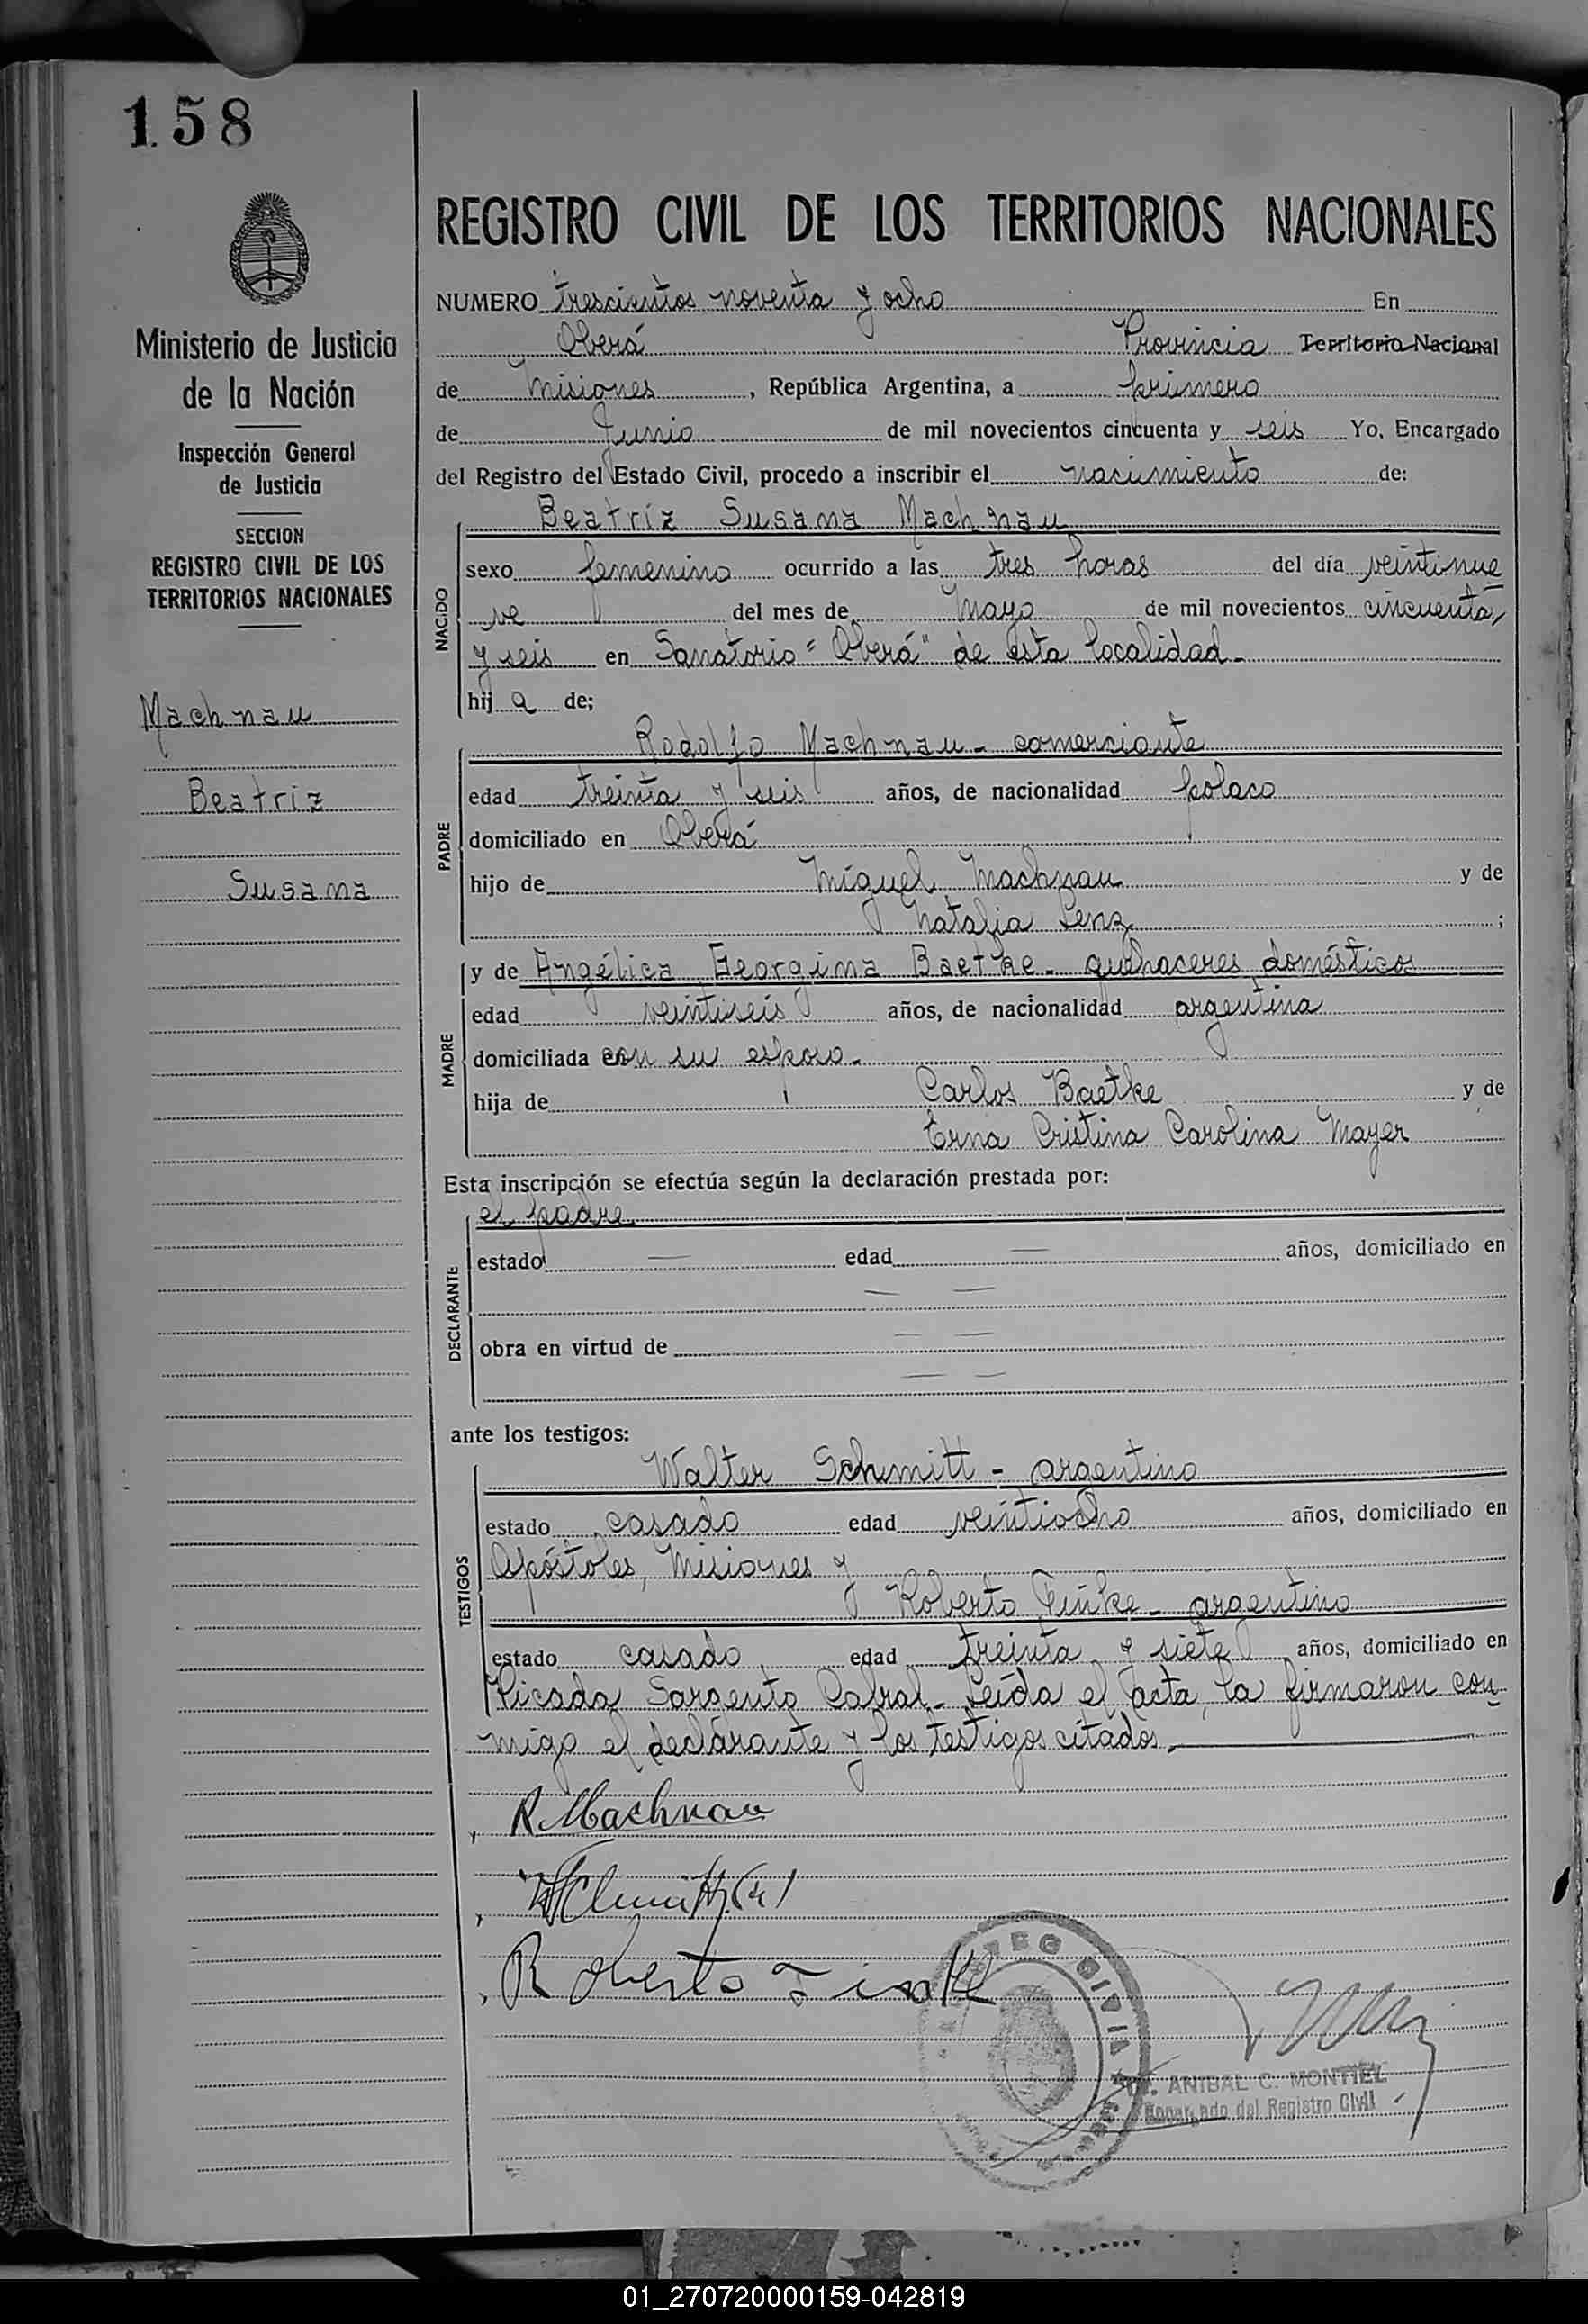 158
Ministerio de Justicia
de la Nación
Inspección General
de Justicia
SECCION
REGISTRO CIVIL DE LOS
TERRITORIOS NACIONALES
Machnau
Beatriz
Susana
REGISTRO CIVIL DE LOS TERRITORIOS NACIONALES
NUMERO trescientos noventa y ocho En
Oberá Provincia Territorio Nacional
de Misiones, República Argentina, a primero
de Junio de mil novecientos cincuenta y seis Yo, Encargado
del Registro del Estado Civil, procedo a inscribir el nacimiento de:
NACIDO
Beatriz Susana Machnau
sexo femenino ocurrido a las tres horas del día veintinue
ve del mes de Mayo de mil novecientos cincuenta
y seis en Sanatorio "Oberá" de esta localidad.-
hij a de;
PADRE
Rodolfo Machnau - comerciante
edad treinta y seis años, de nacionalidad polaco
domiciliado en Oberá
hijo de Miguel Machnau y de
Natalia Lenz ;
MADRE
y de Angélica Georgina Baetke - quehaceres domésticos
edad veintiseis años, de nacionalidad argentina
domiciliada con su esposo.-
hija de Carlos Baetke y de
Erna Cristina Carolina Mayer
Esta inscripción se efectúa según la declaración prestada por:
DECLARANTE
el padre
estado — edad — años, domiciliado en
— —
obra en virtud de — —
— —
ante los testigos:
TESTIGOS
Walter Schmitt - argentino
estado casado edad veintiocho años, domiciliado en
Apóstoles, Misiones y
Roberto Finke - argentino
estado casado edad treinta y siete años, domiciliado en
Picada Sargento Cabral - Leída el acta, la firmaron con
migo el declarante y los testigos citados.
R Machnau
Roberto Finke
REG CIVIL
ANIBAL C. MONTIEL
Encargado del Registro Civil
01_270720000159-042819